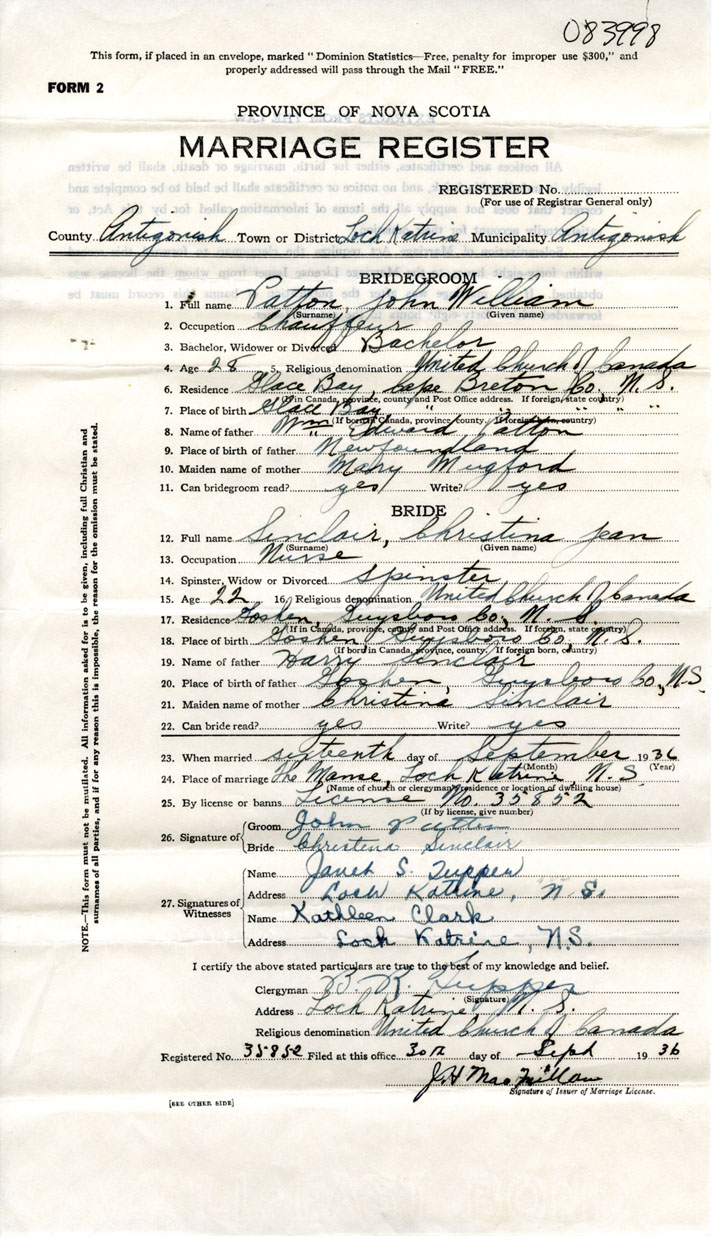 083998
This form, if placed in an envelope, marked "Dominion Statistics—Free, penalty for improper use $300," and
properly addressed will pass through the Mail "FREE."
FORM 2
PROVINCE OF NOVA SCOTIA
MARRIAGE REGISTER
REGISTERED No.
(For use of Registrar General only)
County Antigonish Town or District Loch Katrine Municipality Antigonish
BRIDEGROOM
1. Full name Patton, John William
(Surname) (Given name)
2. Occupation Chauffeur
3. Bachelor, Widower or Divorced Bachelor
4. Age 28 5. Religious denomination United Church of Canada
6. Residence Glace Bay, Cape Breton Co. N.S.
(If in Canada, province, county and Post Office address. If foreign, state country)
7. Place of birth Glace Bay, " " " " "
(If born in Canada, province, county. If foreign born, country)
8. Name of father Wm Edward Patton
9. Place of birth of father Newfoundland
10. Maiden name of mother Mary Mugford
11. Can bridegroom read? yes Write? yes
BRIDE
12. Full name Sinclair, Christina Jean
(Surname) (Given name)
13. Occupation Nurse
14. Spinster, Widow or Divorced Spinster
15. Age 22 16. Religious denomination United Church of Canada
17. Residence Goshen, Guysboro Co., N.S.
(If in Canada, province, county and Post Office address. If foreign, state country)
18. Place of birth Goshen, Guysboro Co. N.S.
(If born in Canada, province, county. If foreign born, country)
19. Name of father Harry Sinclair
20. Place of birth of father Goshen, Guysboro Co., N.S.
21. Maiden name of mother Christina Sinclair
22. Can bride read? yes Write? yes
23. When married sixteenth day of September 1936
(Month) (Year)
24. Place of marriage The Manse, Loch Katrine, N.S.
(Name of church or clergyman's residence or location of dwelling house)
25. By license or banns License No. 35852
(If by license, give number)
26. Signature of Groom John Patton
Bride Christina Sinclair
27. Signatures of Witnesses
Name Janet S. Tupper
Address Loch Katrine, N.S.
Name Kathleen Clark
Address Loch Katrine, N.S.
I certify the above stated particulars are true to the best of my knowledge and belief.
Clergyman B. R. Tupper
(Signature)
Address Loch Katrine, N.S.
Religious denomination United Church of Canada
Registered No. 35852 Filed at this office 30th day of Sept 1936
J.H. MacMillan
Signature of Issuer of Marriage License.
[SEE OTHER SIDE]
NOTE.—This form must not be mutilated. All information asked for is to be given, including full Christian and
surnames of all parties, and if for any reason this is impossible, the reason for the omission must be stated.